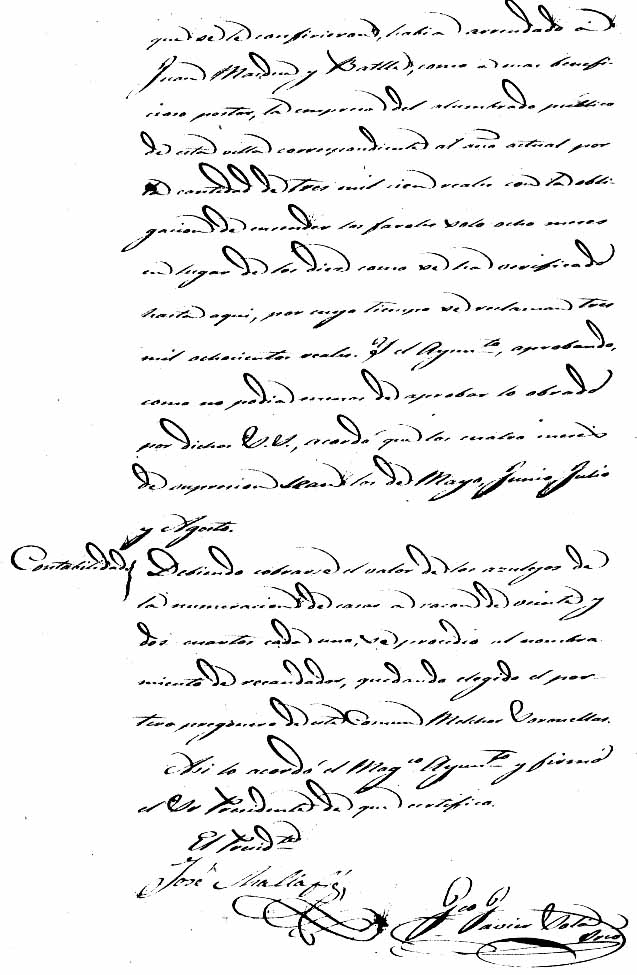 que se le confirieran, habia arrendado á
Juan Maciá y Batlle, como á mas benefi-
cioso postor, la empresa del alumbrado público
de esta villa correspondiente al año actual por
la cantidad de tres mil cien reales con la obli-
gacion de encender los faroles solo ocho meses
en lugar de los diez como se ha verificado
hasta aqui, por cuyo tiempo se reclaman tres
mil ochocientos reales. Y el Ayunto, aprobando,
como no podia menos de aprobar lo obrado
por dichos S.S., acordó que los cuatro meses
de supresion sean los de Mayo, Junio, Julio
y Agosto.
Contabilidad Debiendo cobrarse el valor de los azulejos de
la numeracion de casas a razon de veinte y
dos cuartos cada uno, se procedió al nombra-
miento de recaudador, quedando elegido el por-
tero pregonero de este Comun Melchor Caravellas.
Asi lo acordó el Magco Ayunto y firmó
el Sr Presidente de que certifico.
El Presidte
José
Fco Javier Solá
Srio